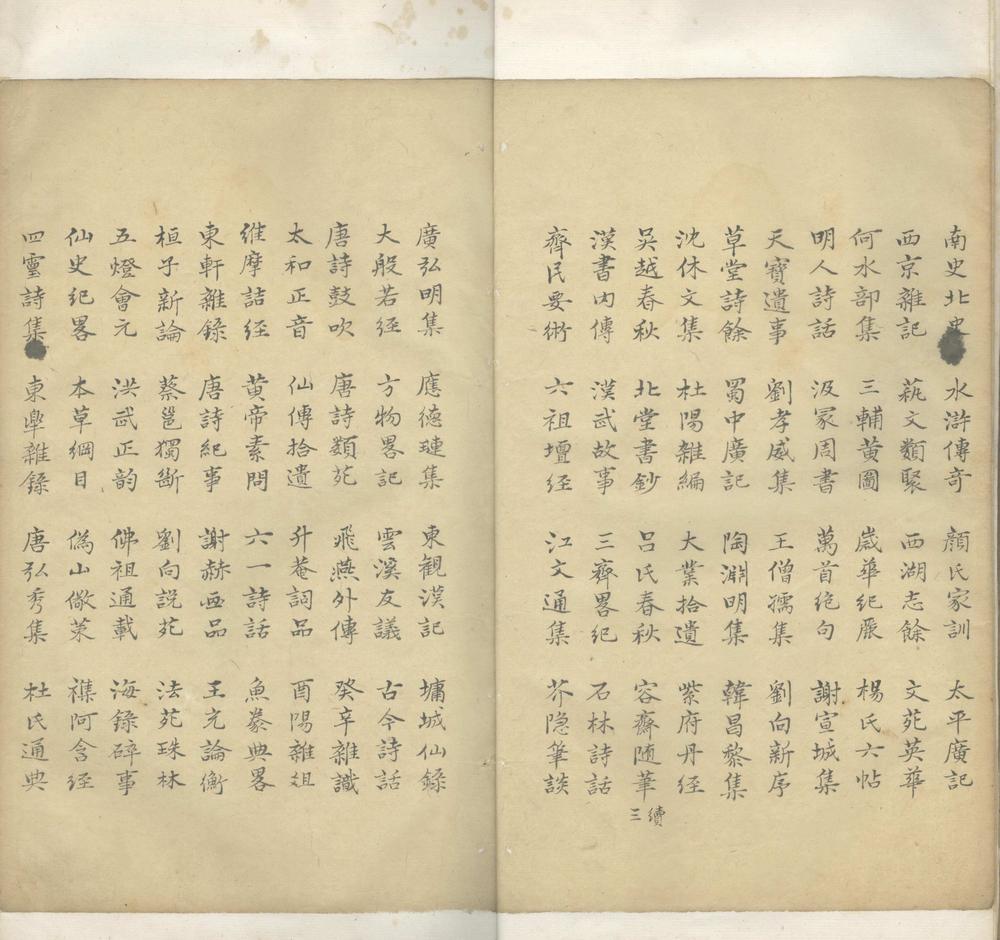 南史北史 水滸傳奇 顔氏家訓 太平廣記
西京雜記 蓺文類聚 西湖志餘 文苑英華
何水部集 三輔黄圖 歲華紀麗 楊氏六帖
明人詩話 汲冡周書 萬首絶句 謝宣城集
天寶遺事 劉孝威集 王僧孺集 劉向新序
草堂詩餘 蜀中廣記 陶淵明集 韓昌黎集
沈休文集 杜陽雜編 大業拾遺 紫府丹經
吳越春秋 北堂書鈔 吕氏春秋 容齋随筆 續三
漢書内傳 漢武故事 三齊畧紀 石林詩話
齊民要術 六祖壇経 江文通集 芥隐筆談
廣弘明集 應德璉集 東觀漢記 墉城仙錄
大般若経 方物畧記 雲溪友議 古今詩話
唐詩鼓吹 唐詩類苑 飛燕外傳 癸辛雜識
太和正音 仙傳拾遺 升菴詞品 酉陽雜俎
維摩詰経 黄帝素問 六一詩話 魚豢典畧
東軒雜錄 唐詩紀事 謝赫画品 王充論衡
桓子新論 蔡邕獨断 劉向説苑 法苑珠林
五燈會元 洪武正韵 佛祖通載 海錄碎事
仙史紀畧 本草綱目 溈山儆策 襍阿含経
四靈詩集 東臯雜錄 唐弘秀集 杜氏通典